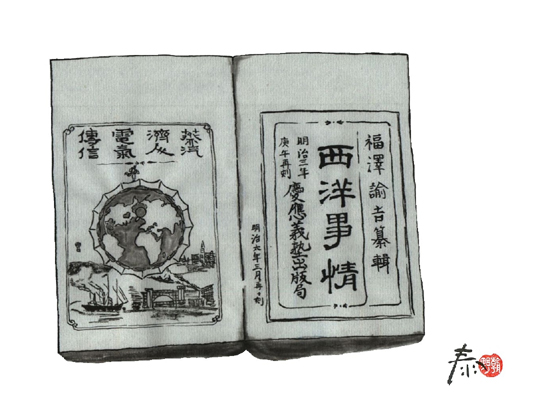 福澤諭吉纂輯
西洋事情
明治三年
庚午再刻
慶應義塾出版局
明治六年三月再刻
蒸汽
濟人
電氣
傳信
泰